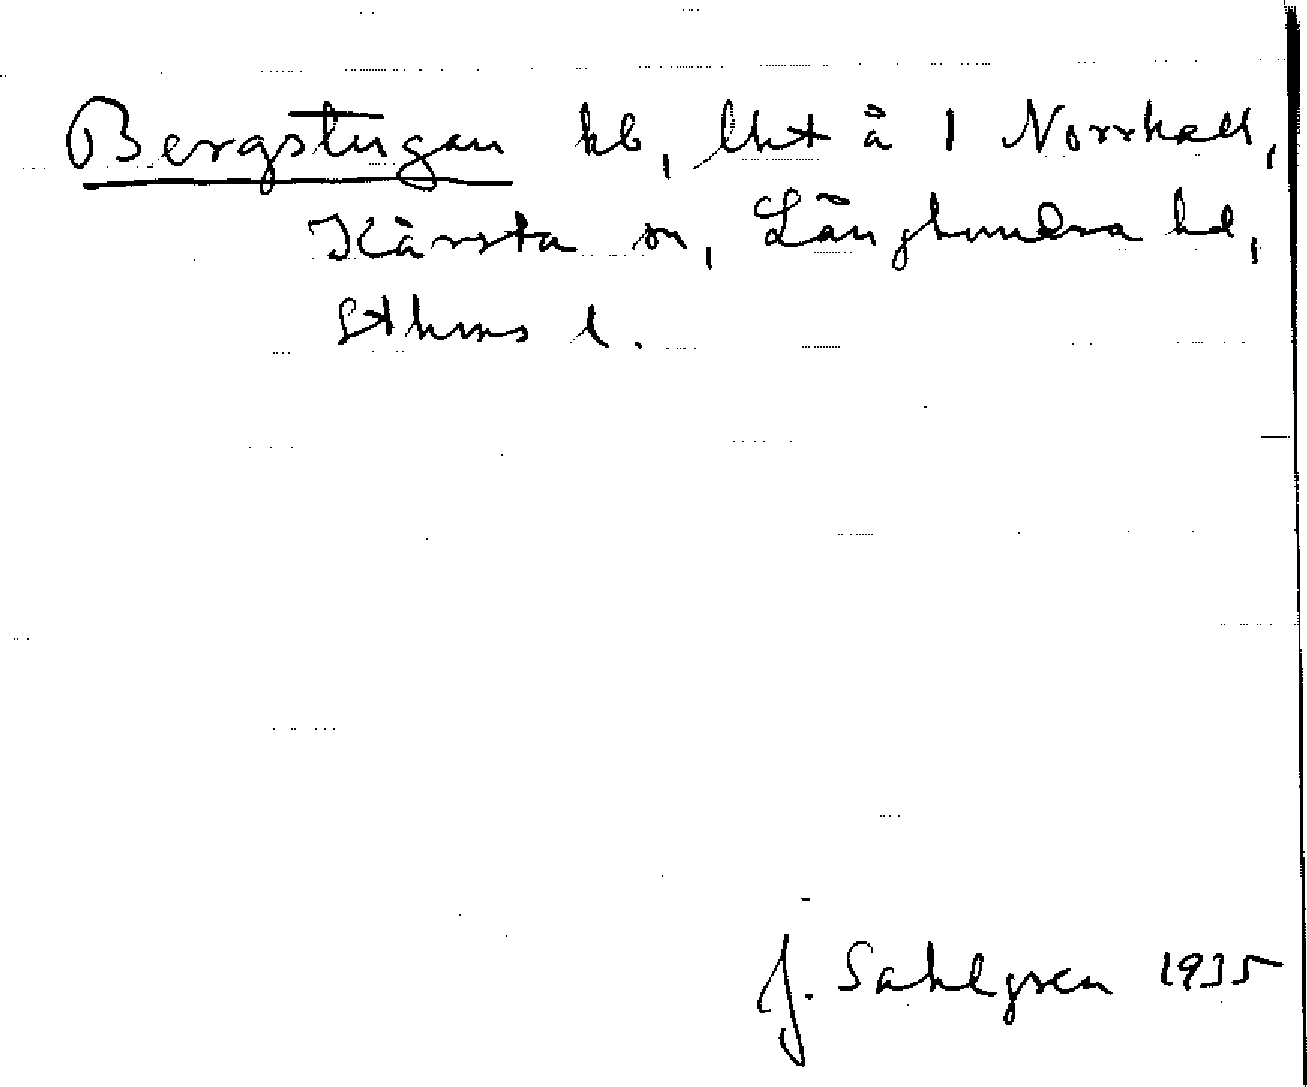 Bergstugan kb, lht å 1 Norrhall,
Kårsta sn, Långhundra hd,
Sthms l.
J. Sahlgren 1935